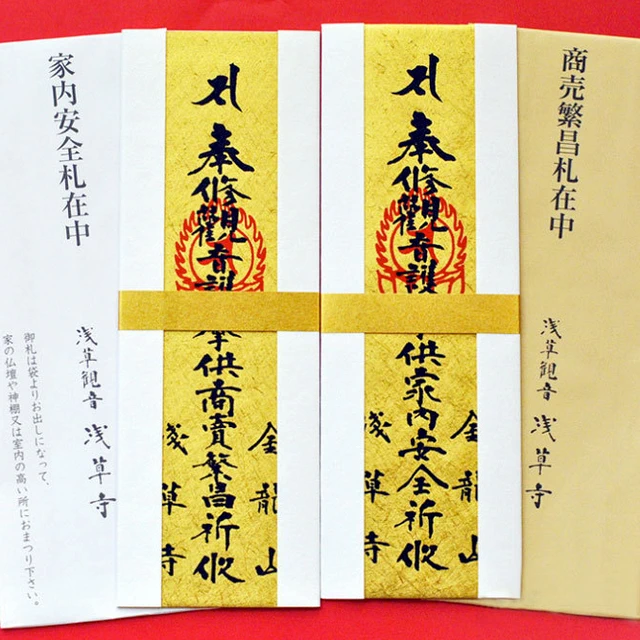 商売繁昌札在中
浅草観音 浅草寺
金龍山
奉修 觀音護
供家内安全祈攸
淺草寺
金龍山
奉修 觀音護
供商賣繁昌祈攸
淺草寺
家内安全札在中
浅草観音 浅草寺
御札は袋よりお出しになって、
家の仏壇や神棚又は室内の高い所におまつり下さい。